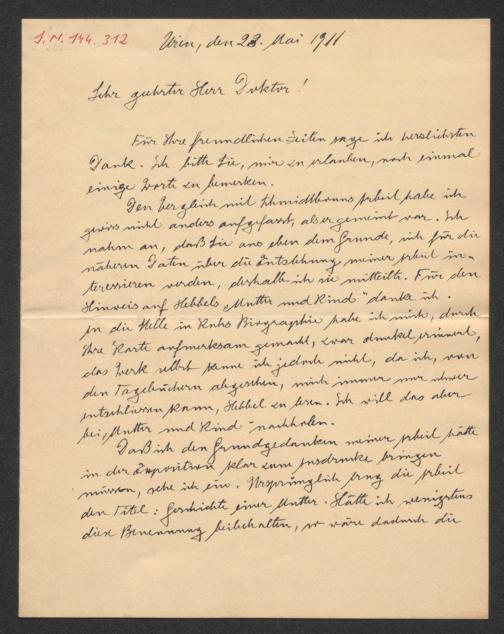 I.N. 144.312
Wien, den 23. Mai 1911
Sehr geehrter Herr Doktor!
Für Ihre freundlichen Zeilen sage ich herzlichsten
Dank. Ich bitte Sie, mir zu erlauben, noch einmal
einige Worte zu bemerken.
Den Vergleich mit Schmidtbonns Arbeit habe ich
gewiss nicht anders aufgefasst, als er gemeint war. Ich
nahm an, daß Sie aus eben dem Grunde, sich für die
näheren Daten über die Entstehung meiner Arbeit in-
teressieren werden, deshalb ich sie mitteilte. Für den
Hinweis auf Hebbels „Mutter und Kind" danke ich.
An die Stelle in Kuhs Biographie habe ich mich, durch
Ihre Karte aufmerksam gemacht, zwar dunkel erinnert,
das Werk selbst kenne ich jedoch nicht, da ich, von
den Tagebüchern abgesehen, mich immer nur schwer
entschliessen kann, Hebbel zu lesen. Ich will das aber
bei „Mutter und Kind" nachholen.
Daß ich den Grundgedanken meiner Arbeit hätte
in der Exposition klar zum Ausdrucke bringen
müssen, sehe ich ein. Ursprünglich trug die Arbeit
den Titel: Geschichte einer Mutter. Hätte ich wenigstens
diese Benennung beibehalten, so wäre dadurch die